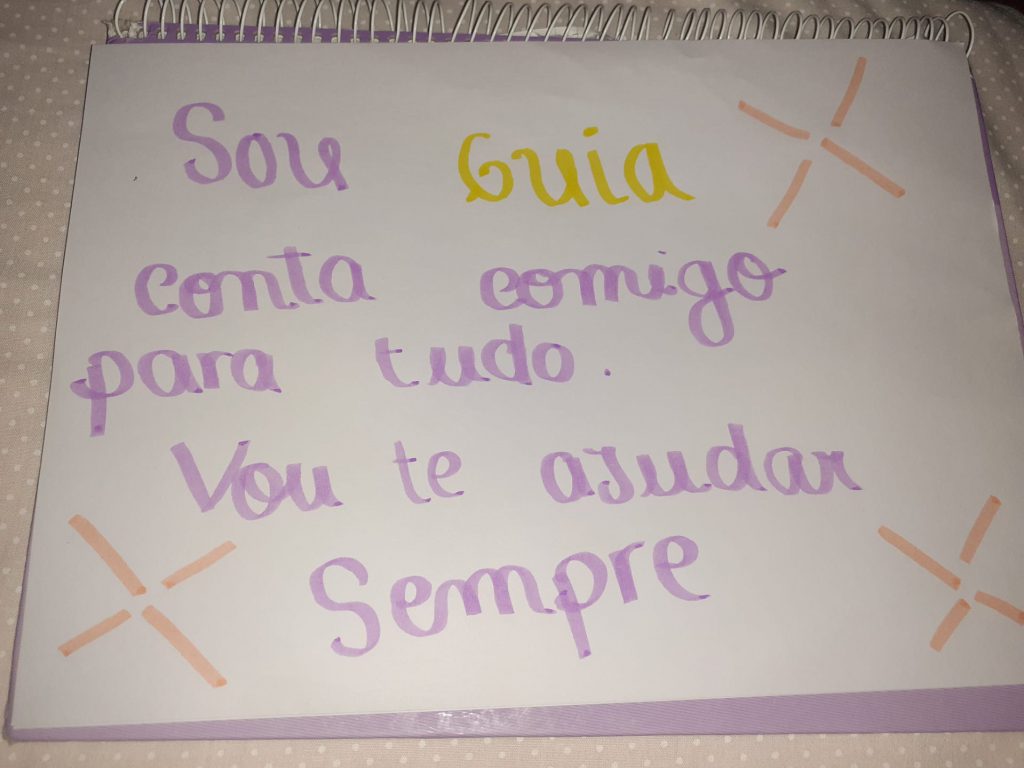 Sou Guia
conta comigo
para tudo.
Vou te ajudar
Sempre